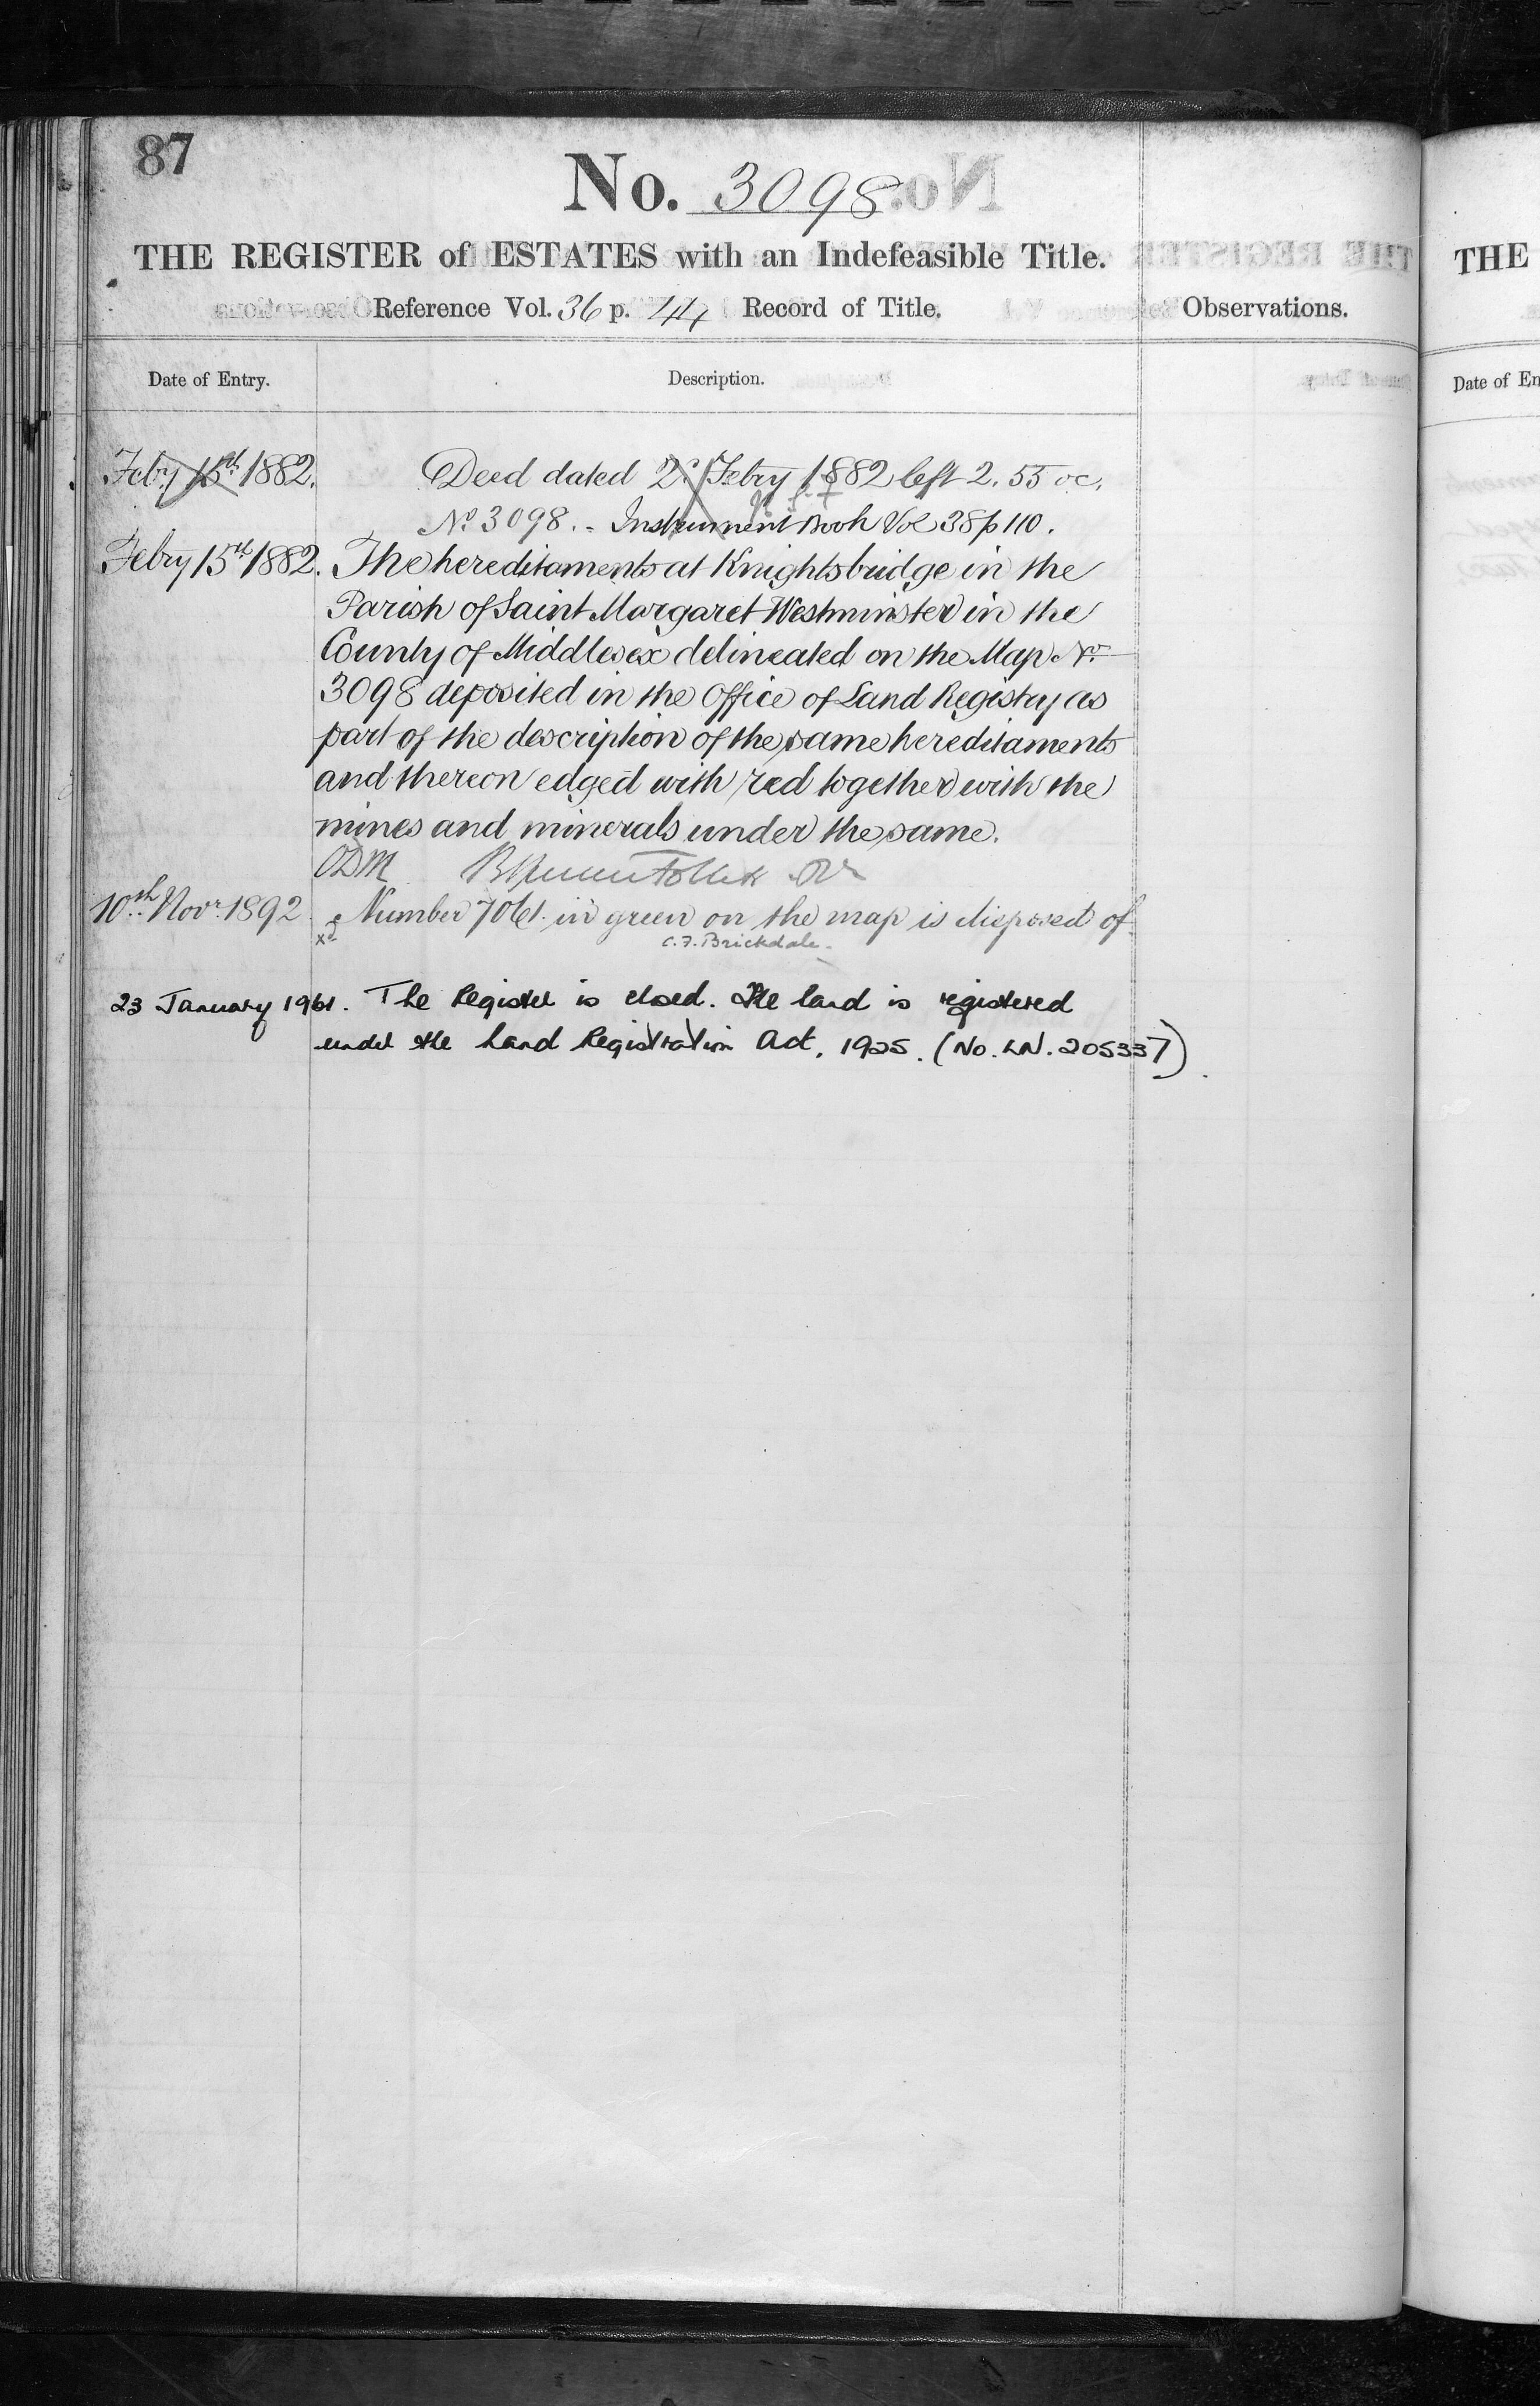 87
No. 3098.
THE REGISTER of ESTATES with an Indefeasible Title.
Reference Vol. 36 p. 44 Record of Title.
Observations.
THE
Date of Entry.
Description.
Date of En
Feby 15th 1882.
Deed dated 2d Febry 1882 left 2.55 oc.
No 3098. - Instrument Book Vol 38 p 110.
Febry 15th 1882. The hereditaments at Knightsbridge in the
Parish of Saint Margaret Westminster in the
County of Middlesex delineated on the Map No
3098 deposited in the Office of Land Registry as
part of the description of the same hereditaments
and thereon edged with red together with the
mines and minerals under the same.
ODM
10th Novr 1892 Number 7061 in green on the map is disposed of
xd
C.F. Brickdale.
23 January 1961. The Register is closed. The land is registered
under the Land Registration Act, 1925. (No. LN. 205337).